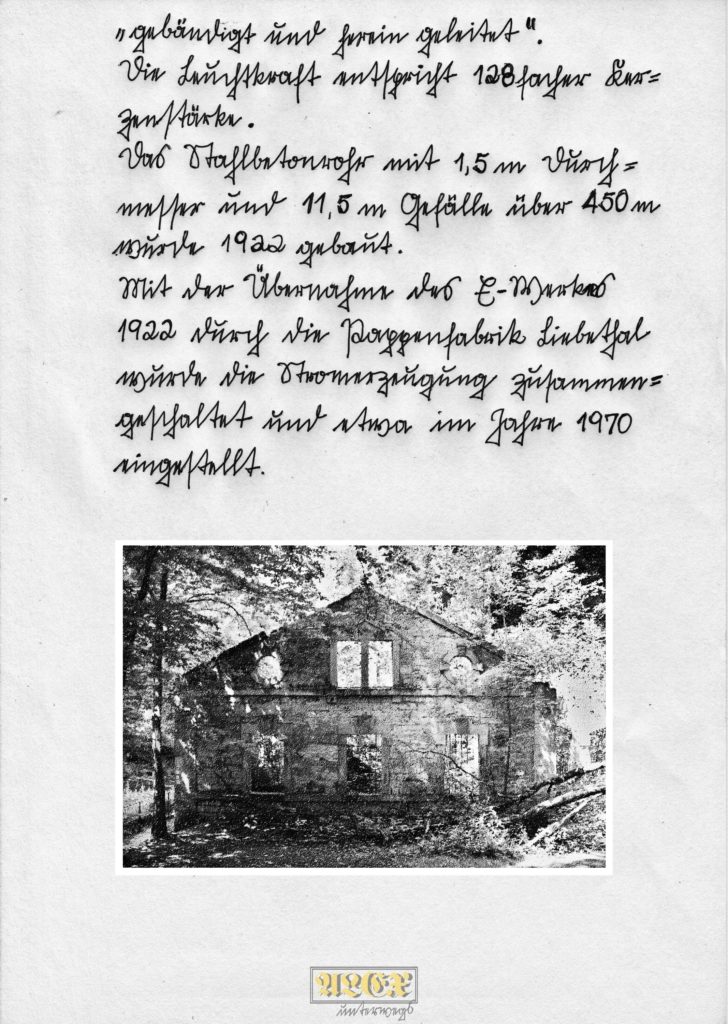 „gebändigt und herein geleitet“.
Die Leuchtkraft entspricht 128facher Ker=
zenstärke.
Das Stahlbetonrohr mit 1,5 m Durch=
messer und 11,5 m Gefälle über 450 m
wurde 1922 gebaut.
Mit der Übernahme des E-Werkes
1922 durch die Pappenfabrik Liebethal
wurde die Stromerzeugung zusammen=
geschaltet und etwa im Jahre 1970
eingestellt.
ALEX
unterwegs